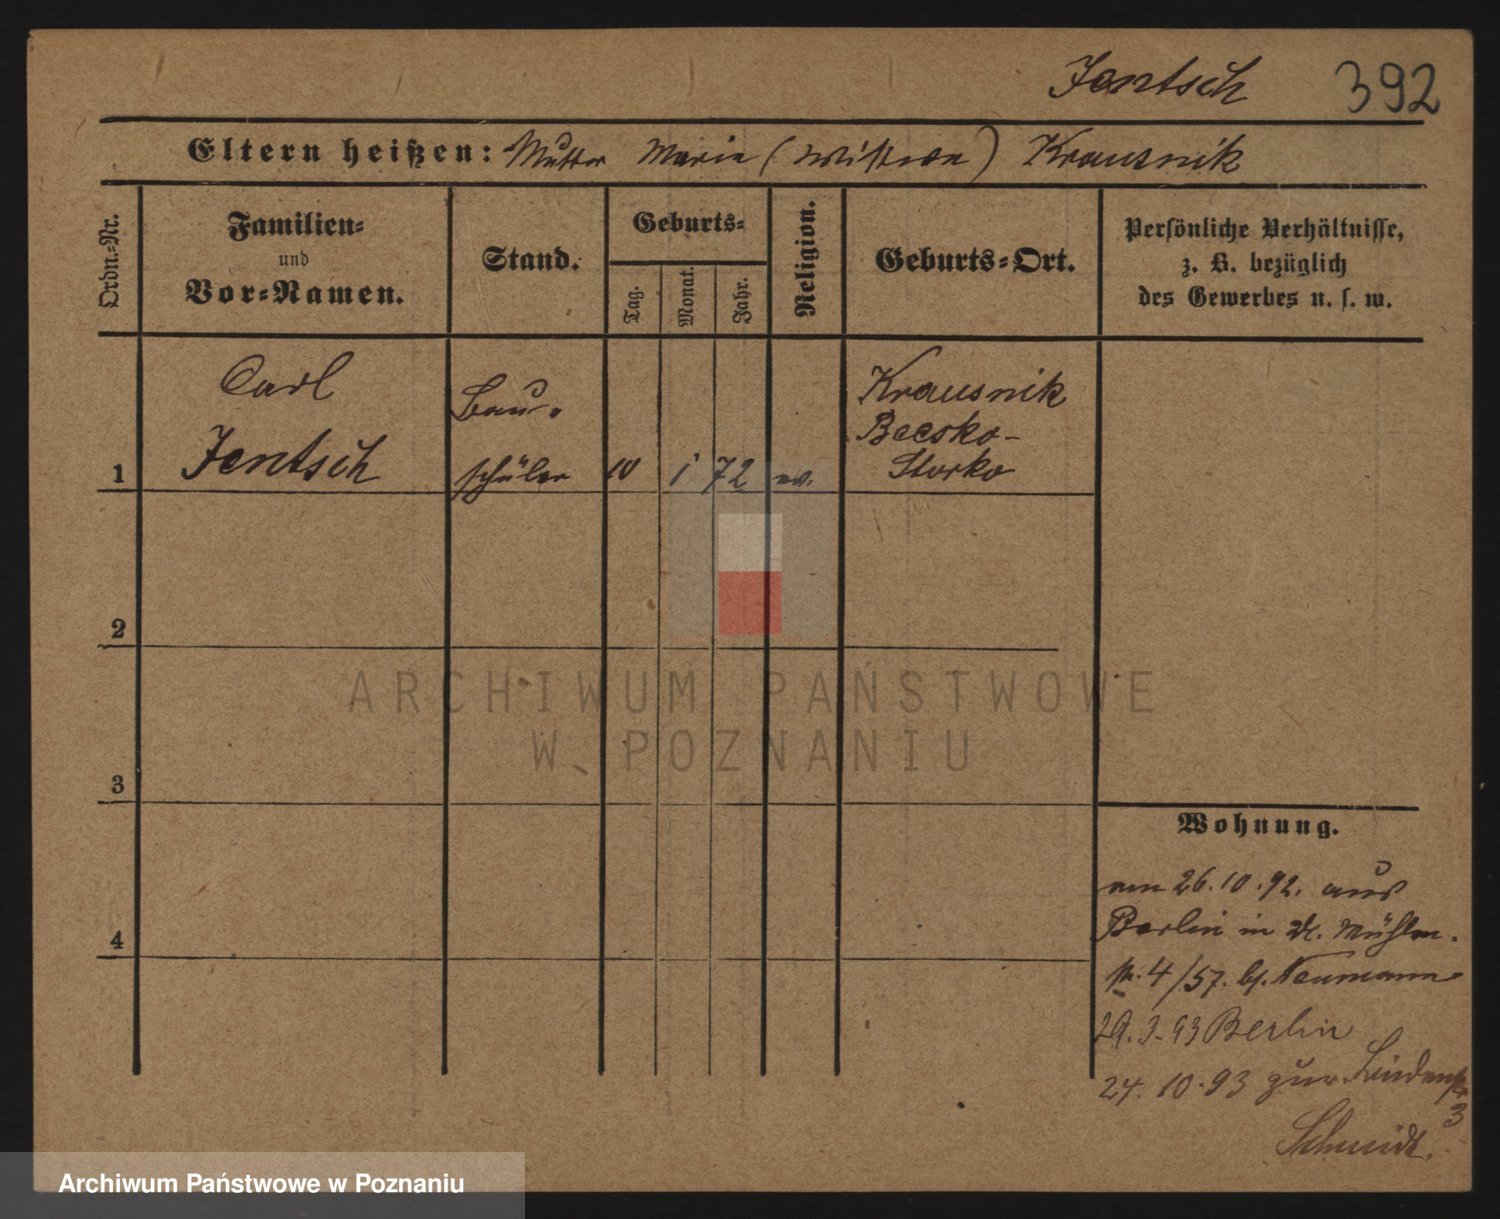 Jentsch 392
Eltern heißen: Mutter Marie (Wittwe) Krausnik
Ordn.-Nr.
Familien-
und
Vor-Namen.
Stand.
Geburts-
Tag.
Monat.
Jahr.
Religion.
Geburts-Ort.
Persönliche Verhältnisse,
z. B. bezüglich
des Gewerbes u. s. w.
1
Carl
Jentsch
Bau-
schüler
10 1 72 ev.
Krausnik
Beesko-
Storko
2
ARCHIWUM PAŃSTWOWE
W POZNANIU
3
Wohnung.
am 26.10.92. aus
Berlin in Mühlen-
str. 4/57. bei Neumann
29.3.93 Berlin
24.10.93 zur. Lindenstr
3
Schmidt.
4
Archiwum Państwowe w Poznaniu